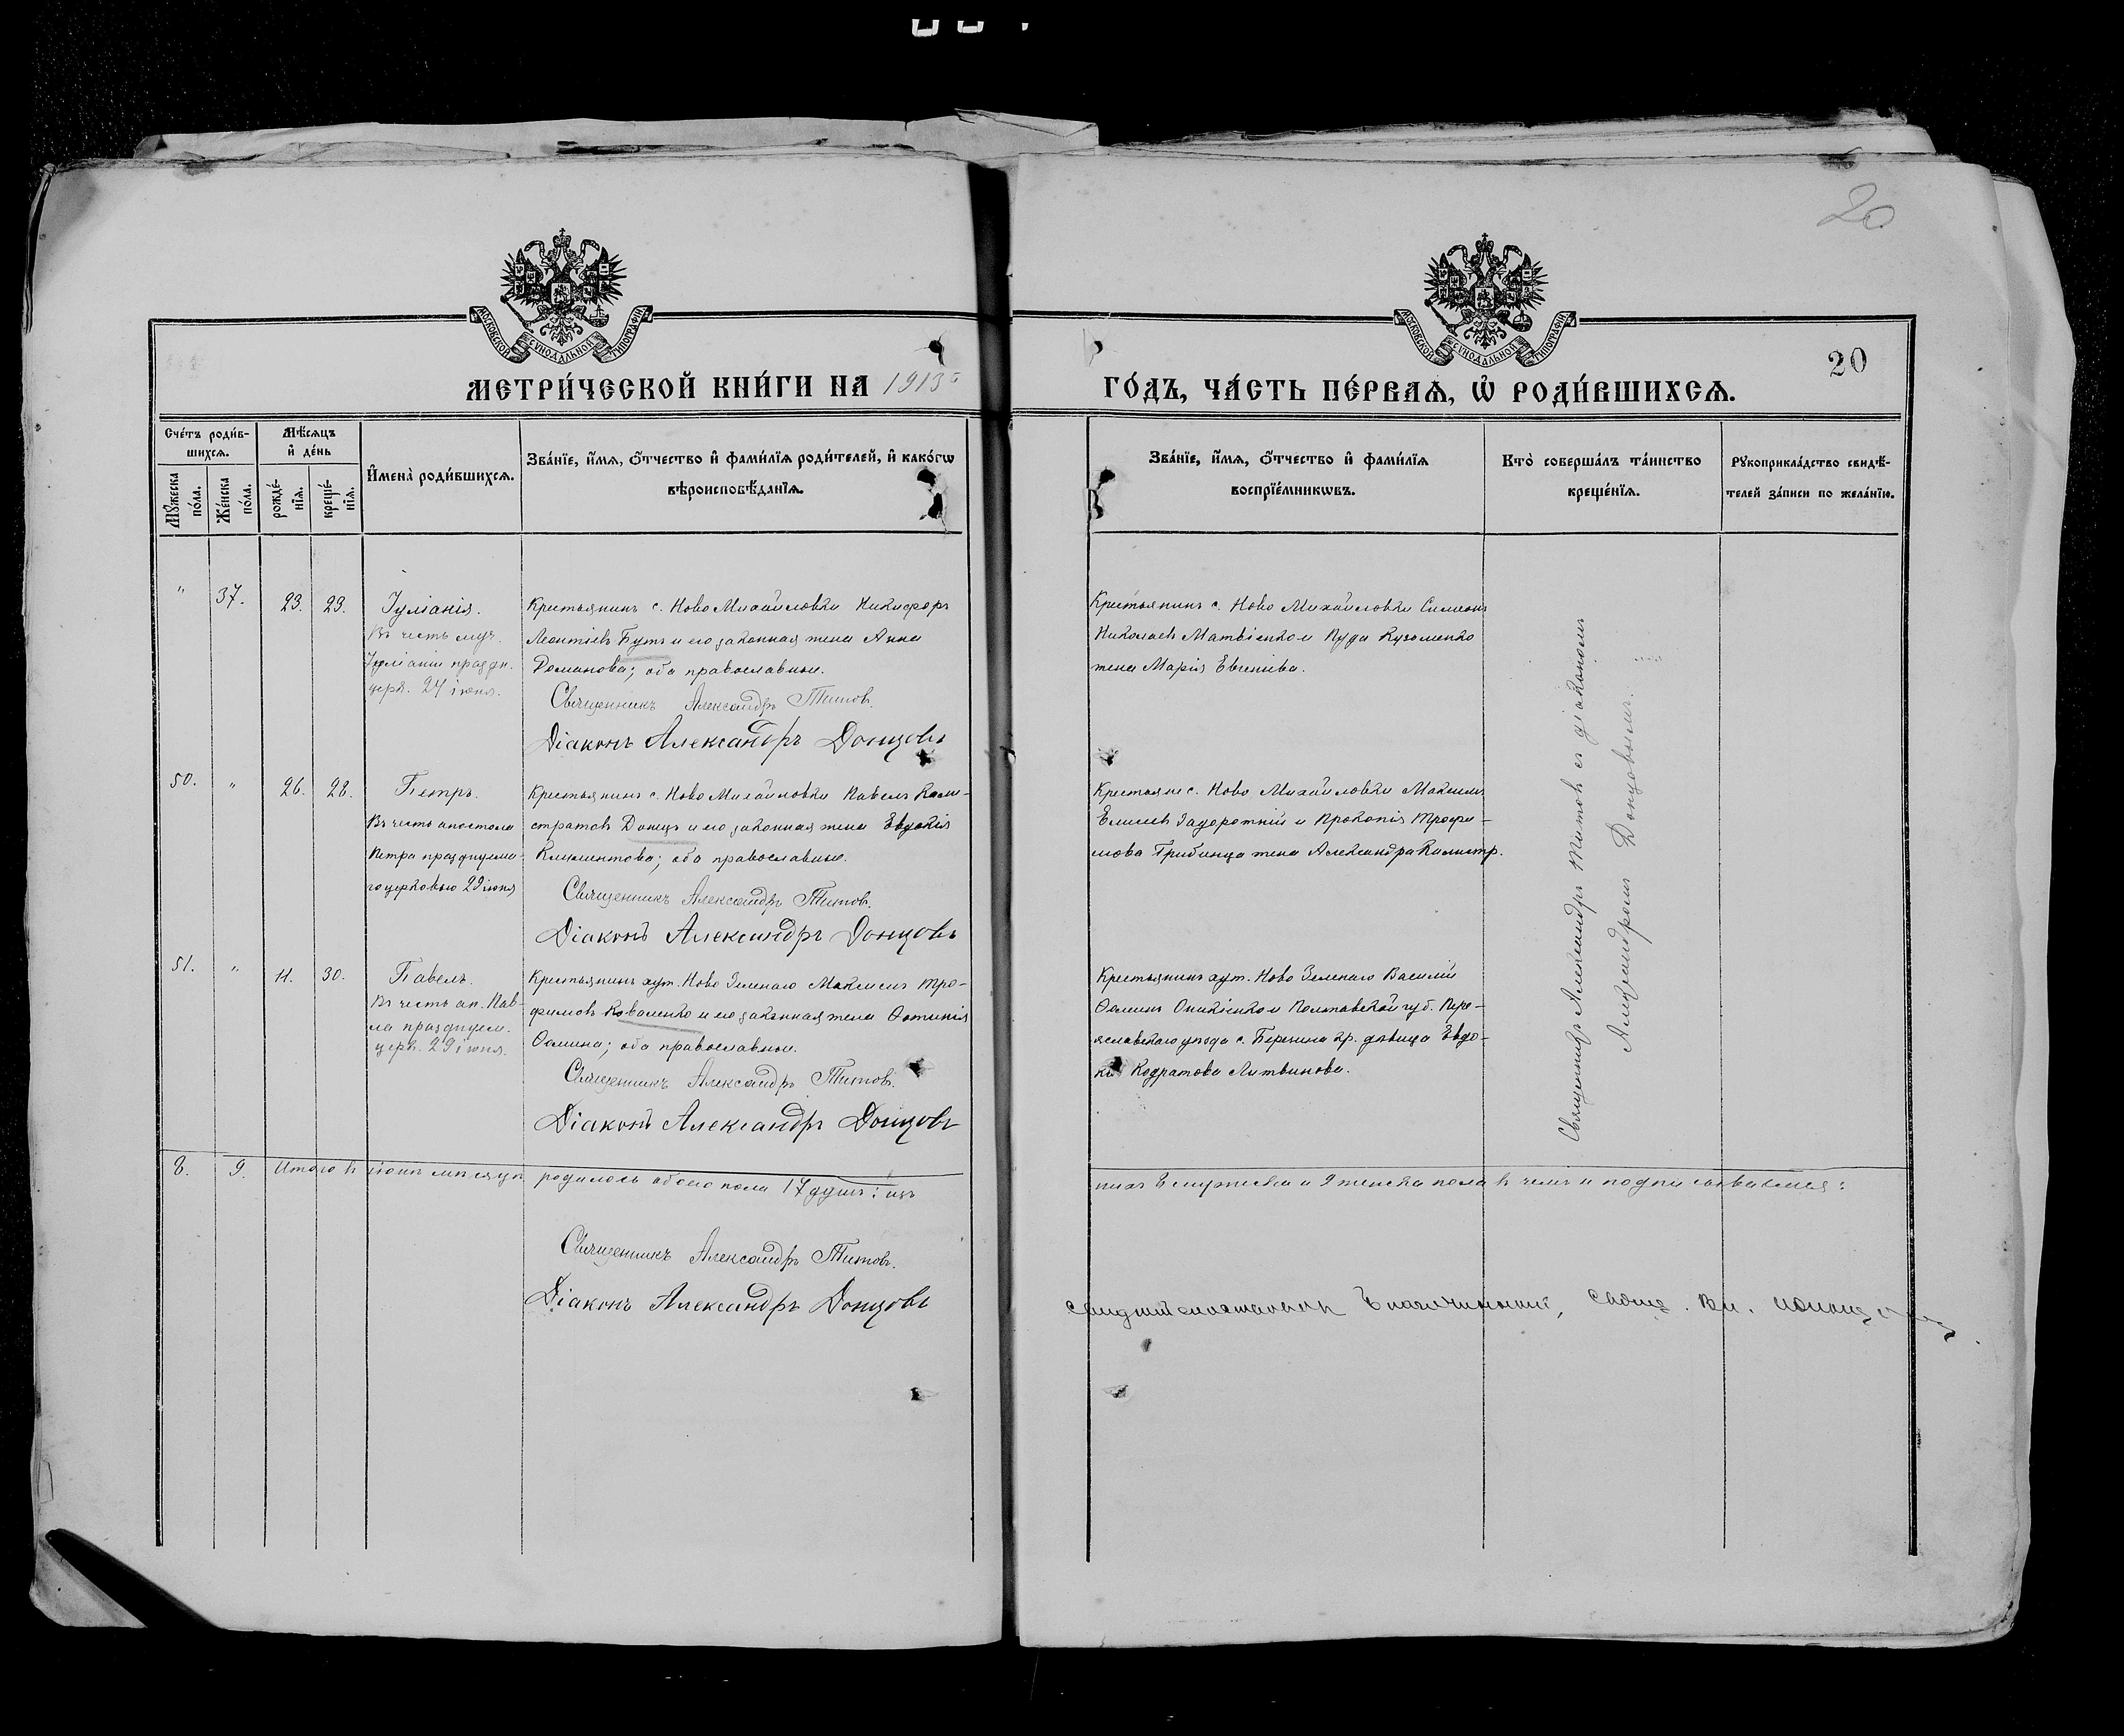 20
МОСКОВСКОЙ СѴНОДАЛЬНОЙ ТИПОГРАФІИ
МОСКОВСКОЙ СѴНОДАЛЬНОЙ ТИПОГРАФІИ
20
МЕТРИ́ЧЕСКОЙ КНИ́ГИ НА 1913
ГО́ДЪ, ЧА́СТЬ ПЕ́РВАѦ, Ѡ҆ РОДИ́ВШИХСѦ.
Сче́тъ роди́в-
шихсѧ.
Мꙋ́жеска по́ла.
Же́нска по́ла.
Мѣ́сѧцъ
и҆ де́нь
рожде́-
нїѧ.
креще́-
нїѧ.
И҆мена̀ роди́вшихсѧ.
Зва́нїе, и҆́мѧ, ѻ҆́тчество и҆ фами́лїѧ роди́телей, и҆ како́гѡ
вѣроисповѣ́данїѧ.
Зва́нїе, и҆́мѧ, ѻ҆́тчество и҆ фами́лїѧ
воспрїе́мникѡвъ.
Кто̀ соверша́лъ та́инство
креще́нїѧ.
Рꙋкоприкла́дство свидѣ́-
телей за́писи по жела́нїю.
" 37. 23. 29. Іуліанія.
Въ честь муч.
Іуліаніи праздн.
церк. 24 іюня.
Крестьянинъ с. Ново Михайловки Никифоръ
Леонтіевъ Бутъ и его законная жена Анна
Романова; оба православные.
Священникъ Александръ Титовъ.
Діаконъ Александръ Донцовъ
Крестьянинъ с. Ново Михайловки Симеонъ
Николаевъ Матвіенко и Кузьменко
жена Марія Евгеніева.
50. " 26. 28. Петръ.
Въ честь апостола
Петра празднуема-
го церковью 29 іюня
Крестьянинъ с. Ново Михайловки Павелъ Кали-
стратовъ Донецъ и его законная жена Евдокія
Климентова; оба православные.
Священникъ Александръ Титовъ.
Діаконъ Александръ Донцовъ
Крестьяне с. Ново Михайловки Максимъ
Елисеевъ Задорожній и Прокопія Трофи-
мова Грибинца жена Александра Калистр.
51. " 11. 30. Павелъ.
Въ честь ап. Пав-
ла празднуем.
церк. 29 іюня.
Крестьянинъ хут. Ново Зеленаго Максимъ Тро-
фимовъ Коваленко и его законная жена Фотинія
Фомина; оба православные.
Священникъ Александръ Титовъ.
Діаконъ Александръ Донцовъ
Крестьянинъ хут. Ново Зеленаго Василій
Фоминъ Оникіенко и Полтавской губ. Пере-
яславскаго уезда с. Березина кр. девица Евдо-
кія Кодратова Литвинова.
Священникъ Александръ Титовъ съ діакономъ
Александромъ Донцовымъ.
8. 9. Итого въ іюнѣ мѣсяцѣ родилось обоего пола 17 душъ: изъ
нихъ 8 мужеска и 9 женска пола въ чемъ и подписываемся:
Священникъ Александръ Титовъ.
Діаконъ Александръ Донцовъ
Благочинный, Свящ. Вл.